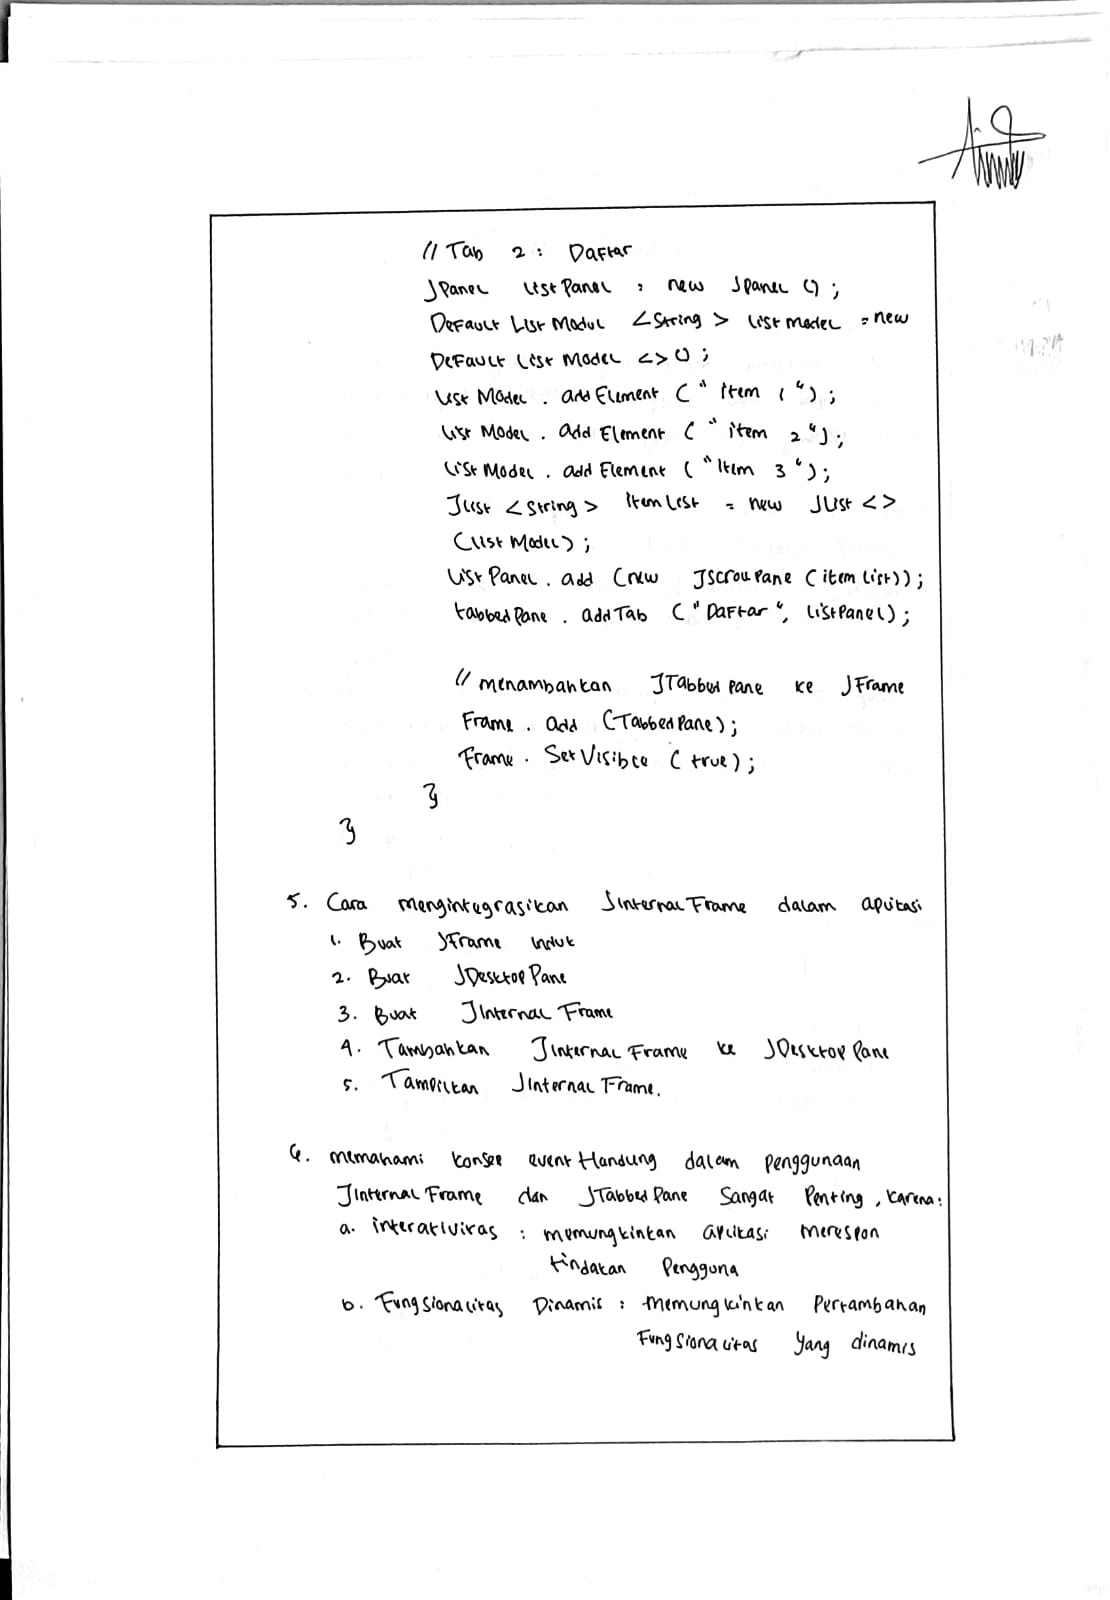 // Tab 2 : Daftar
JPanel listPanel = new JPanel ();
Default List Model <String> list model = new
Default List Model <>();
List Model . add Element ("Item 1");
List Model . add Element ("item 2");
List Model . add Element ("Item 3");
JList <String> Item List = new JList <>
(List Model);
List Panel . add (new JScroll Pane (item list));
tabbed Pane . add Tab ("Daftar", listPanel);
// menambahkan JTabbed Pane ke JFrame
Frame . add (Tabbed Pane);
Frame . Set Visible (true);
}
}
5. Cara mengintegrasikan JInternal Frame dalam aplikasi
1. Buat JFrame induk
2. Buat JDesktop Pane
3. Buat JInternal Frame
4. Tambahkan JInternal Frame ke JDesktop Pane
5. Tampilkan JInternal Frame.
6. memahami konsep event Handling dalam penggunaan
JInternal Frame dan JTabbed Pane Sangat Penting, karena:
a. interaktivitas : memungkinkan aplikasi merespon
tindakan Pengguna
b. Fungsionalitas Dinamis : memungkinkan Pertambahan
Fungsionalitas yang dinamis